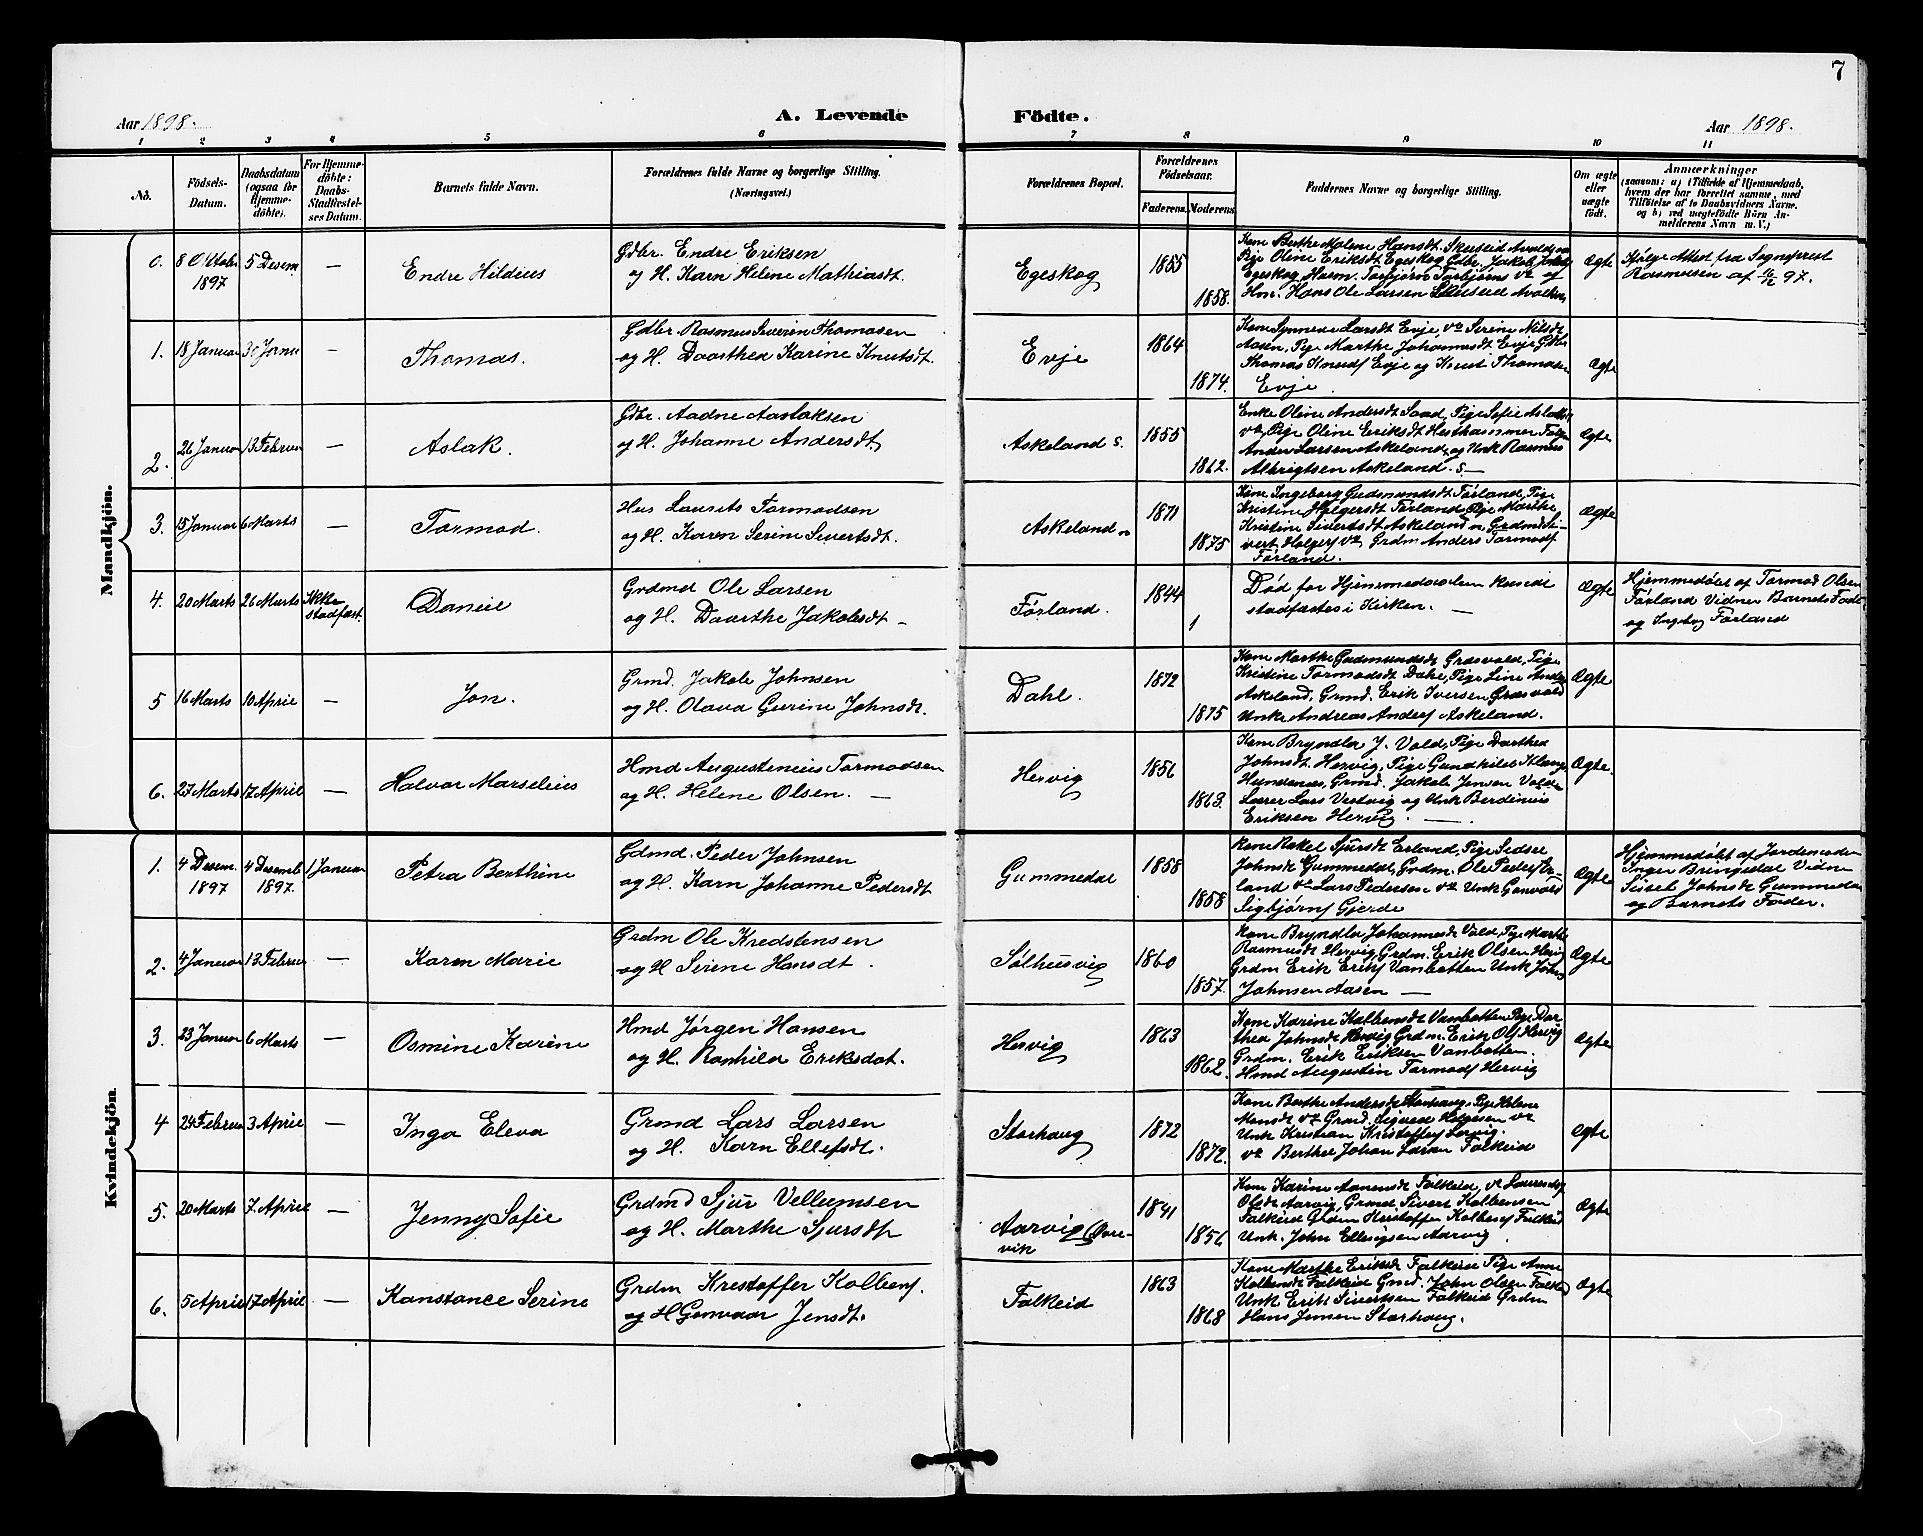 7
Aar 1898.
A. Levende Födte.
Aar 1898.
1 2 3 4 5 6 7 8 9 10 11
No.
Födsels-
Datum.
Daabsdatum
(ogsaa for
Hjemme-
döbte).
For Hjemme-
döbte:
Daabs-
Stadfæstel-
ses Datum.
Barnets fulde Navn.
Forældrenes fulde Navne og borgerlige Stilling.
(Næringsvej.)
Forældrenes Bopæl.
Forældrenes
Födselsaar.
Faderens. Moderens
Faddernes Navne og borgerlige Stilling.
Om ægte
eller
uægte
födt.
Anmærkninger
(saasom: a) i Tilfælde af Hjemmedaab,
hvem der har forrettet samme, med
Tilföielse af to Daabsvidners Navne.
og b) ved uægtefödte Börn An-
melderens Navn m. V.)
Mandkjön.
0. 8 Oktober 1897 5 Desem — Endre Hildius
Gdbr. Endre Eriksen
og H. Karn Helene Mathiasdt.
Egeskog 1855 1858.
Kone Berthe Malene Hansdt. Skeiseid
Pige Oline Eriksdt Egeskog Gdbr. Jakob
Egeskog, Husm. Torbjørn Torbjørns vz og
Hm. Hans Ole Larsen Skeiseid
Ægte
Ifølge Attest fra Sognepræst
Rasmusen af 16/12 97.
1. 18 Januar 30 Janu — Thomas.
Gdbr. Rasmus Severin Thomasen
og H. Daarthea Karine Knutsdt.
Evje 1864 1874.
Kone Synneva Larsdt Evje vz Serine Nilsdt
Aasen, Pige Marthe Johannesdt Evje Gdbr
Thomas Knuds Evje og Knut Thomasen
Evje.
Ægte
2. 26 Januar 13 Februar — Aslak.
Gdbr. Aadne Aaslaksen
og H. Johanne Andersdt
Askeland s. 1855 1862.
Enke Oline Andersdt Saad, Pige Sofie
vz, Pige Oline Eriksdt Hesthammer
Anders Larsen Askeland, og Unk Rasmus
Albrigtsen Askeland. s —
Ægte
3. 15 Januar 6 Marts — Tormod.
Hus Laurits Tormodsen
og H. Karen Serine Sivertsdt.
Askeland n 1871 1875
Kone Ingeborg Gudmundsdt Førland, Pige
Kristine Holgersdt Førland, Pige Marthe
Kristine Sivertsdt Askeland n, Grdm Si-
vert Holgers vz Grdm Anders Tormods
Førland.
Ægte
4. 20 Marts 26 Marts Ikke stadfæst. Daniel
Grdmd Ole Larsen
og H. Daarthe Jakobsdt —
Førland. 1844 1
Død før Hjemmedaaben kunde
stadfæstes i Kirken. —
Ægte
Hjemmedøbt af Tormod Olsen
Førland Vidner Barnets Fader
og Ingebor Førland
5 16 Marts 10 April — Jon.
Grmd. Jakob Johnsen
og H. Olava Gurine Johnsdt.
Dahl. 1872 1875
Kone Marthe Gudmundsdt Grasvald, Pige
Kristine Tormodsdt Dahle, Pige Line Anders
Askeland, Grmd. Erik Iversen Grasvald
Unke Andreas Anders Askeland.
Ægte
6. 27 Marts 17 April — Halvar Marselius
Hmd Augustenius Tormodsen
og H. Helene Olsen. —
Hervig 1856 1863.
Kone Bryndla J. Vold, Pige Dorthea
Johnsdt Hervig, Pige Gunhild
Hundenes, Grmd. Jakob Jensen Vold
Lærer Lars Vestvig og Unk Berdinius
Eriksen Hervig. —
Ægte.
Kvindekjön
1. 4 Desem. 1897 4 Desemb 1897. 1 Januar Petra Berthine
Gdmd. Peder Johnsen
og H. Karn Johanne Pedersdt
Gummedal 1858 1858
Kone Rakel Sjursdt Erland, Pige Sidsel
Johnsdt Gummedal, Grdm. Ole Peders Er-
land vz Lars Pedersen vz Unk Gunvald
Sigbjørns Gjerde
Ægte
Hjemmedøbt af Jordemoder
Inger Bringedal Vidne
Sissel Johnsdt Gummedal
og Barnets Fader.
2. 4 Januar 13 Februar — Karen Marie
Grdm Ole Kredstensen
og H Serene Hansdt.
Solhusvig 1860 1857.
Kone Bryndla Johannesdt Vold, Pige Marthe
Rasmusdt Hervig, Grdm. Erik Olsen Hervig
Grdm Erik Eriks Vanbotten Unk John
Johnsen Aasen —
Ægte
3. 23 Januar 6 Marts — Osmine Karine
Hmd Jørgen Hansen
og H. Ranhild Eriksdat.
Hervig 1863 1862.
Kone Karine Kolbensdt Vanbotten, Pige Dor-
thea Johnsdt Hervig Grdm. Erik Ols Hervig
Grdm. Erik Eriksen Vanbotten.
Hmd Augustin Tormods Hervig
Ægte
4 24 Februar 3 April — Inga Eleva
Grmd Lars Larsen
og H. Karn Ellefsdt.
Storhaug 1872 1872.
Kone Berthe Andersdt Storhaug. Pige Helene
Monsdt vz Grmd. Sigurd Helgesen vz
Unk Kristian Kristoffers Lervig.
vz Berthel Johan Larsen Falkeid
Ægte
5. 20 Marts 7. April — Jenny Sofie
Grdmd Sjur Vellumsen
og H. Marthe Sjursdt
Aarvig (Øvre-
vik 1841 1856
Kone Karine Aanensdt Falkeid, vz
Olsdt Aarvig, Grmd. Sivert Kolbensen
Falkeid Grdm Kristoffer Kolbens Falkeid
Unk. John Ellingsen Aarvig.
Ægte
6. 5 April 17 April — Konstance Serine
Grdm Krestoffer Kolbens.
og H Gunvaar Jensdt.
Falkeid 1863 1868
Kone Marthe Eriksdt Falkeid Pige Anne
Kolbensdt Falkeid Grmd. John Olsen Falkeid
Unk Erik Sivertsen Falkeid Grdm
Hans Jensen Storhaug.
Ægte